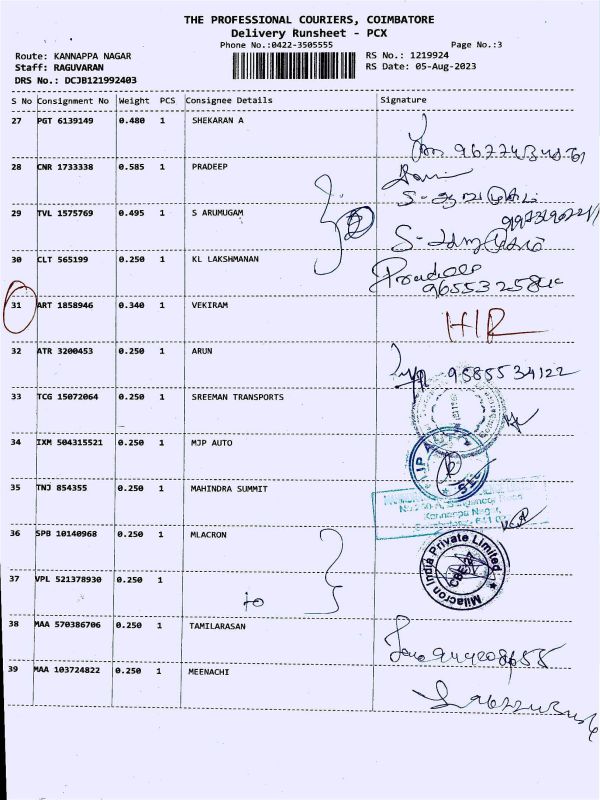 THE PROFESSIONAL COURIERS, COIMBATORE
Delivery Runsheet - PCX
Phone No.:0422-3505555
Page No.:3
Route: KANNAPPA NAGAR
Staff: RAGUVARAN
DRS No.: DCJB121992403
RS No.: 1219924
RS Date: 05-Aug-2023
S No Consignment No Weight PCS Consignee Details Signature
27 PGT 6139149 0.480 1 SHEKARAN A
28 CNR 1733338 0.585 1 PRADEEP
29 TVL 1575769 0.495 1 S ARUMUGAM
30 CLT 565199 0.250 1 KL LAKSHMANAN
Pradeep
31 ART 1858946 0.340 1 VEKIRAM
32 ATR 3200453 0.250 1 ARUN 9585534122
33 TCG 15072064 0.250 1 SREEMAN TRANSPORTS
34 IXM 504315521 0.250 1 MJP AUTO
35 TNJ 854355 0.250 1 MAHINDRA SUMMIT
Kannappa Nagar,
36 SPB 10140968 0.250 1 MLACRON
Milacron India Private Limited
CBE-27
37 VPL 521378930 0.250 1
to
38 MAA 570386706 0.250 1 TAMILARASAN
39 MAA 103724822 0.250 1 MEENACHI